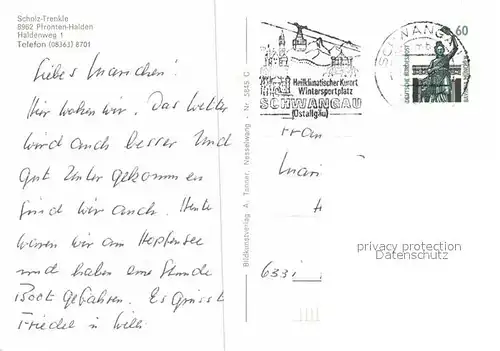 Scholz-Trenkle
8962 Pfronten-Halden
Haldenweg 1
Telefon (08363) 8701
Liebes Mariechen!
Hir wohen wir. Das Wetter
wird auch besser und
gut unter gekommen
sind wir auch. Heute
waren wir am Hopfensee
und haben eine Stunde
Boot gefahren. Es grüsst
Friedel u Willi
Bildkunstverlag A. Tanner, Nesselwang - Nr. 5845 C
Heilklimatischer Kurort
Wintersportplatz
SCHWANGAU
(Ostallgäu)
SCHWANGAU
60
DEUTSCHE BUNDESPOST
Fra
Mari
633
privacy protection
Datenschutz